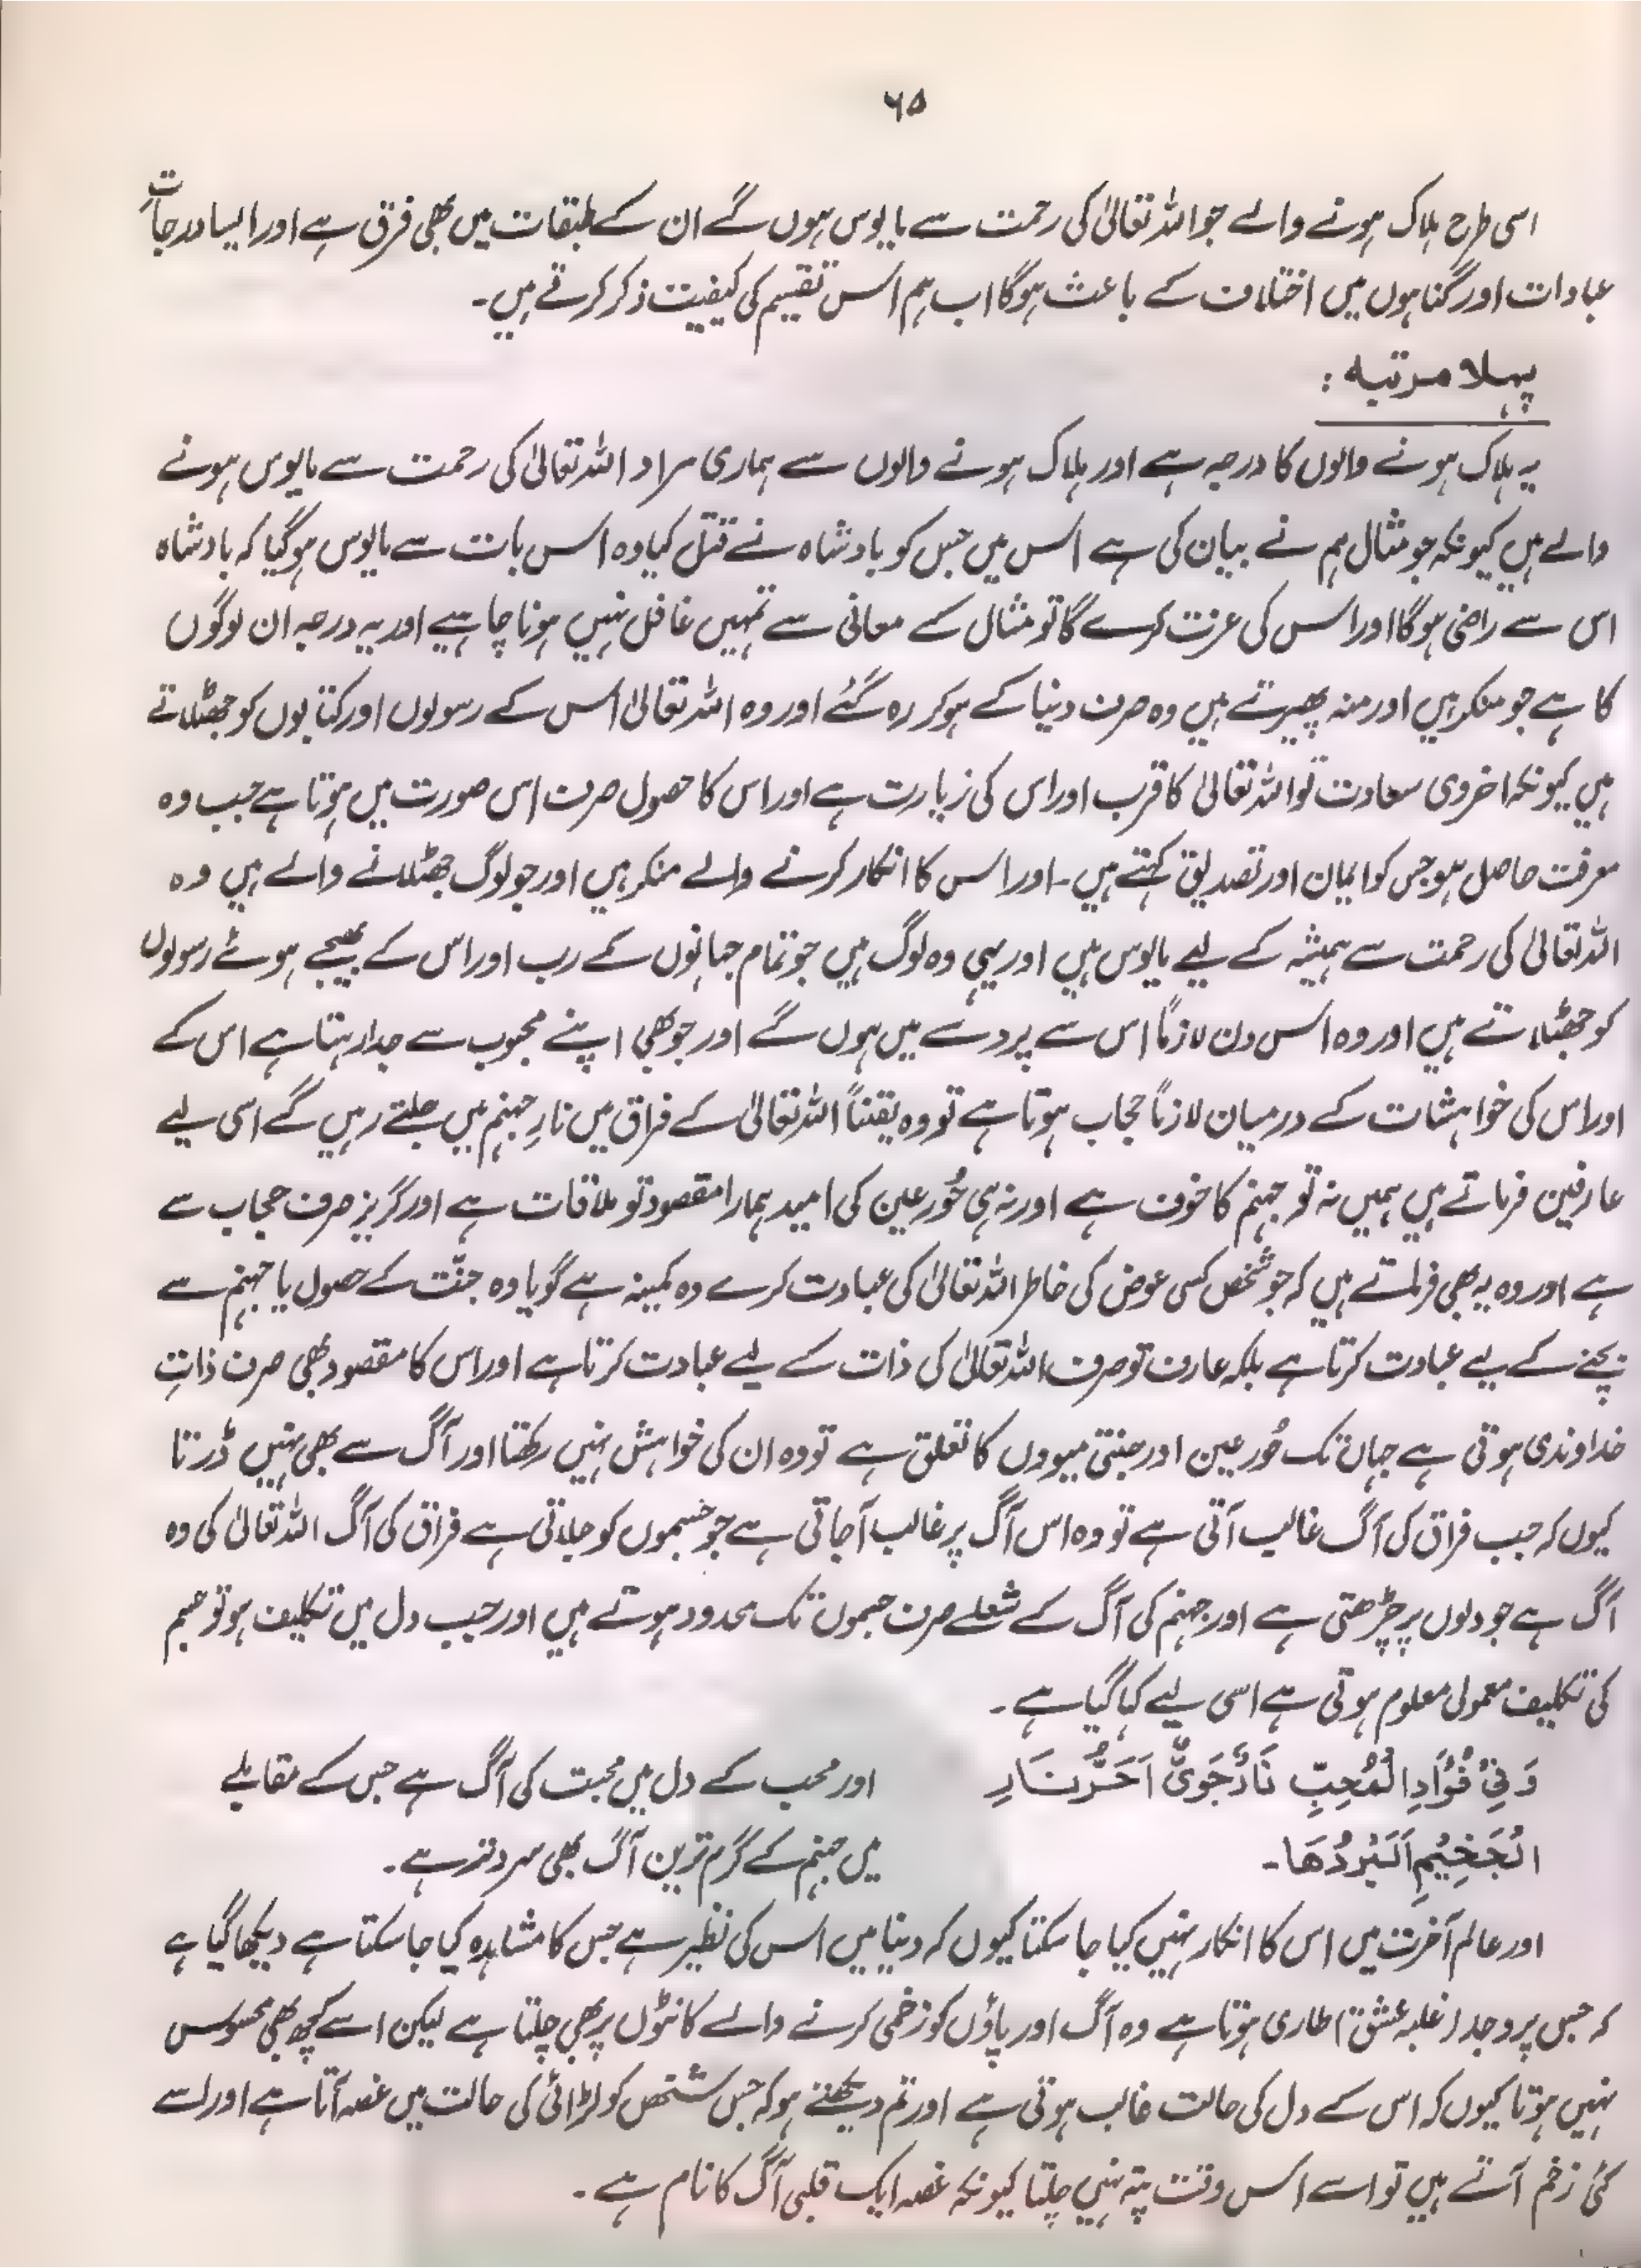 ۶۵
اسی طرح ہلاک ہونے والے جو اللہ تعالیٰ کی رحمت سے مایوس ہوں گے ان کے طبقات میں بھی فرق ہے اور ایسا درجاتِ
عبادات اور گناہوں میں اختلاف کے باعث ہوگا اب ہم اس تقسیم کی کیفیت ذکر کرتے ہیں۔
پہلا مرتبہ :
یہ ہلاک ہونے والوں کا درجہ ہے اور ہلاک ہونے والوں سے ہماری مراد اللہ تعالیٰ کی رحمت سے مایوس ہونے
والے ہیں کیونکہ جو مثال ہم نے بیان کی ہے اس میں جس کو بادشاہ نے قتل کیا وہ اس بات سے مایوس ہوگیا کہ بادشاہ
اس سے راضی ہوگا اور اس کی عزت کرے گا تو مثال کے معانی سے تمہیں غافل نہیں ہونا چاہیے اور یہ درجہ ان لوگوں
کا ہے جو منکر ہیں اور منہ پھیرتے ہیں وہ صرف دنیا کے ہو کر رہ گئے اور وہ اللہ تعالیٰ اس کے رسولوں اور کتابوں کو جھٹلاتے
ہیں کیونکہ اخروی سعادت تو اللہ تعالیٰ کا قرب اور اس کی زیارت ہے اور اس کا حصول صرف اس صورت میں ہوتا ہے جب وہ
معرفت حاصل ہو جس کو ایمان اور تصدیق کہتے ہیں۔ اور اس کا انکار کرنے والے منکر ہیں اور جو لوگ جھٹلانے والے ہیں وہ
اللہ تعالیٰ کی رحمت سے ہمیشہ کے لیے مایوس ہیں اور یہی وہ لوگ ہیں جو تمام جہانوں کے رب اور اس کے بھیجے ہوئے رسولوں
کو جھٹلاتے ہیں اور وہ اس دن لازماً اس سے پردے میں ہوں گے اور جو بھی اپنے محبوب سے جدا رہتا ہے اس کے
اور اس کی خواہشات کے درمیان لازماً حجاب ہوتا ہے تو وہ یقیناً اللہ تعالیٰ کے فراق میں نارِ جہنم میں جلتے رہیں گے اسی لیے
عارفین فرماتے ہیں ہمیں نہ تو جہنم کا خوف ہے اور نہ ہی حُور عین کی امید ہمارا مقصود تو ملاقات ہے اور گریز صرف حجاب سے
ہے اور وہ یہ بھی فرماتے ہیں کہ جو شخص کسی عوض کی خاطر اللہ تعالیٰ کی عبادت کرے وہ کمینہ ہے گویا وہ جنّت کے حصول یا جہنم سے
بچنے کے لیے عبادت کرتا ہے بلکہ عارف تو صرف اللہ تعالیٰ کی ذات کے لیے عبادت کرتا ہے اور اس کا مقصود بھی صرف ذاتِ
خداوندی ہوتی ہے جہاں تک حُور عین اور جنتی میووں کا تعلق ہے تو وہ ان کی خواہش نہیں رکھتا اور آگ سے بھی نہیں ڈرتا
کیوں کہ جب فراق کی آگ غالب آتی ہے تو وہ اس آگ پر غالب آجاتی ہے جو جسموں کو جلاتی ہے فراق کی آگ اللہ تعالیٰ کی وہ
آگ ہے جو دلوں پر چڑھتی ہے اور جہنم کی آگ کے شعلے صرف جسموں تک محدود ہوتے ہیں اور جب دل میں تکلیف ہو تو جسم
کی تکلیف معمولی معلوم ہوتی ہے اسی لیے کہا گیا ہے۔
وَفِیْ فُؤَادِ الْمُحِبِّ نَارُ جَوًی اَحَرُّ نَارِ
اور محب کے دل میں محبت کی آگ ہے جس کے مقابلے
الْجَحِیْمِ اَبْرَدُهَا۔
میں جہنم کے گرم ترین آگ بھی سرد تر ہے۔
اور عالم آخرت میں اس کا انکار نہیں کیا جا سکتا کیوں کہ دنیا میں اس کی نظیر ہے جس کا مشاہدہ کیا جا سکتا ہے دیکھا گیا ہے
کہ جس پر وجد (غلبہ عشق) طاری ہوتا ہے وہ آگ اور پاؤں کو زخمی کرنے والے کانٹوں پر بھی چلتا ہے لیکن اسے کچھ بھی محسوس
نہیں ہوتا کیوں کہ اس کے دل کی حالت غالب ہوتی ہے اور تم دیکھتے ہو کہ جس شخص کو لڑائی کی حالت میں غصہ آتا ہے اور اسے
کئی زخم آتے ہیں تو اسے اس وقت پتہ نہیں چلتا کیونکہ غصہ ایک قلبی آگ کا نام ہے۔